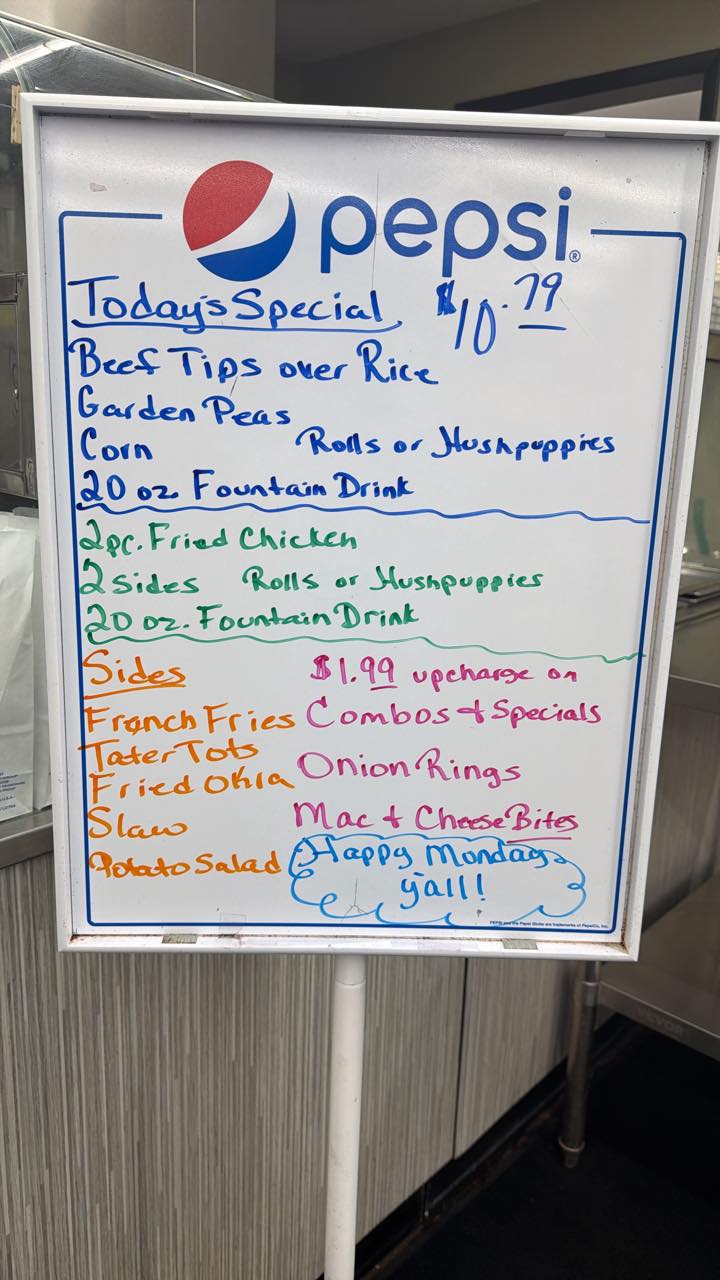 pepsi®
Today's Special $10.79
Beef Tips over Rice
Garden Peas
Corn Rolls or Hushpuppies
20 oz. Fountain Drink
2pc. Fried Chicken
2 Sides Rolls or Hushpuppies
20 oz. Fountain Drink
Sides
French Fries
Tater Tots
Fried Okra
Slaw
Potato Salad
$1.99 upcharge on
Combos + Specials
Onion Rings
Mac + Cheese Bites
Happy Monday
y'all!
PEPSI and the Pepsi Globe are trademarks of PepsiCo, Inc.
VEVOR